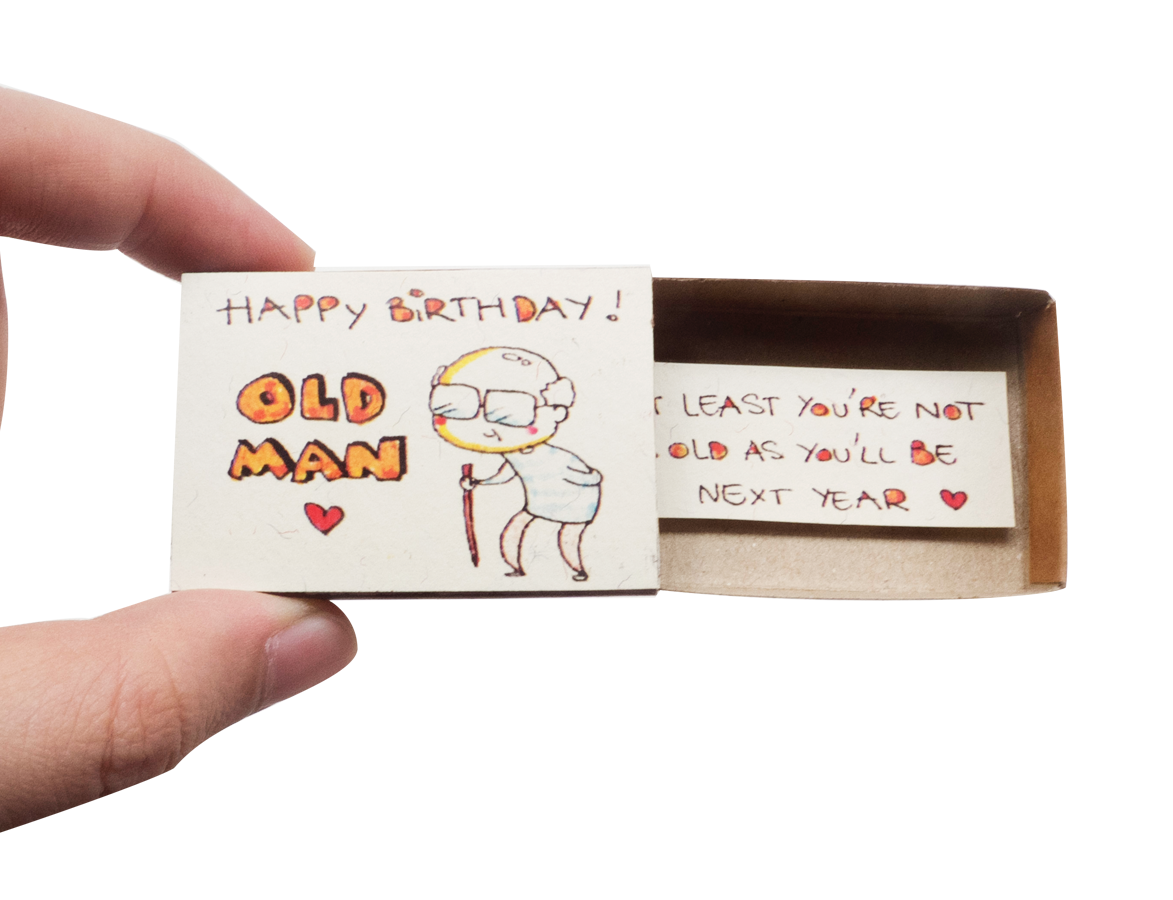 HAPPY BiRTHDAY!
OLD
MAN
LEAST YOU'RE NOT
OLD AS YOU'LL BE
NEXT YEAR